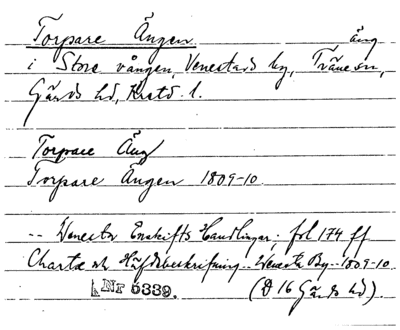 Torpare Ängen äng
i Store vången, Venestads by, Träne sn,
Gärds hd, Kristd. l.
Torpare Äng
Torpare Ängen 1809-10.
-- Wenesta Enskifts Handlingar, fol 174 ff
Charta och Häfdebeskrifning.. Wenesta By -- 1809-10.
Nr 5339. (D 16 Gärds hd).